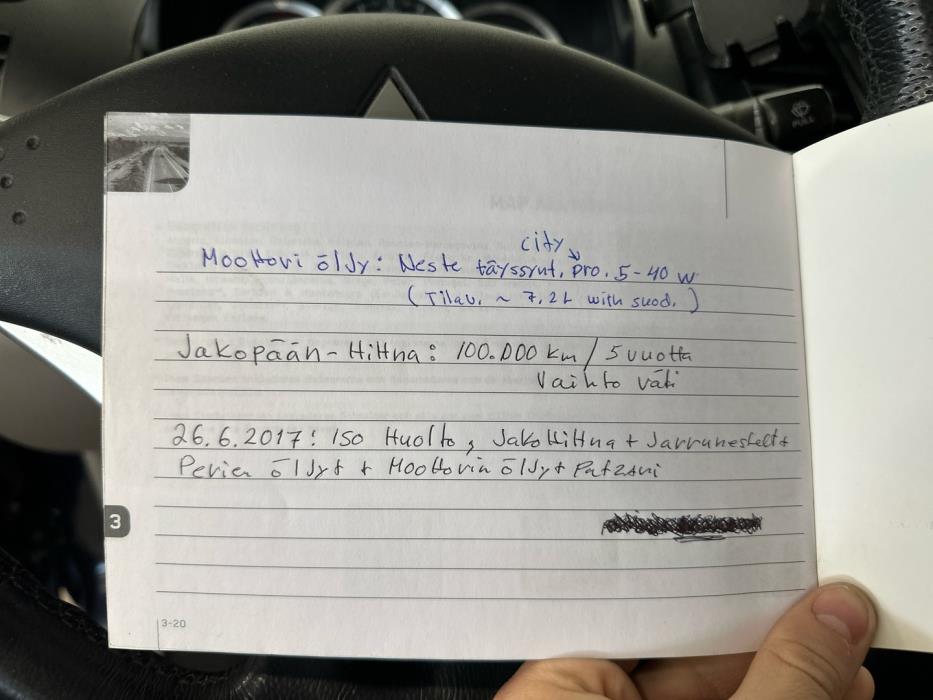 city
Moottori öljy: Neste täyssynt. pro. 5-40 W
(Tilav. ~ 7,2L with suod.)
Jakopään-Hihna: 100.000 km / 5 vuotta
Vaihto väli
26.6.2017: ISO Huolto, Jakohihna + Jarrunesteet +
Perien öljyt + Moottorin öljyt +
3
3-20